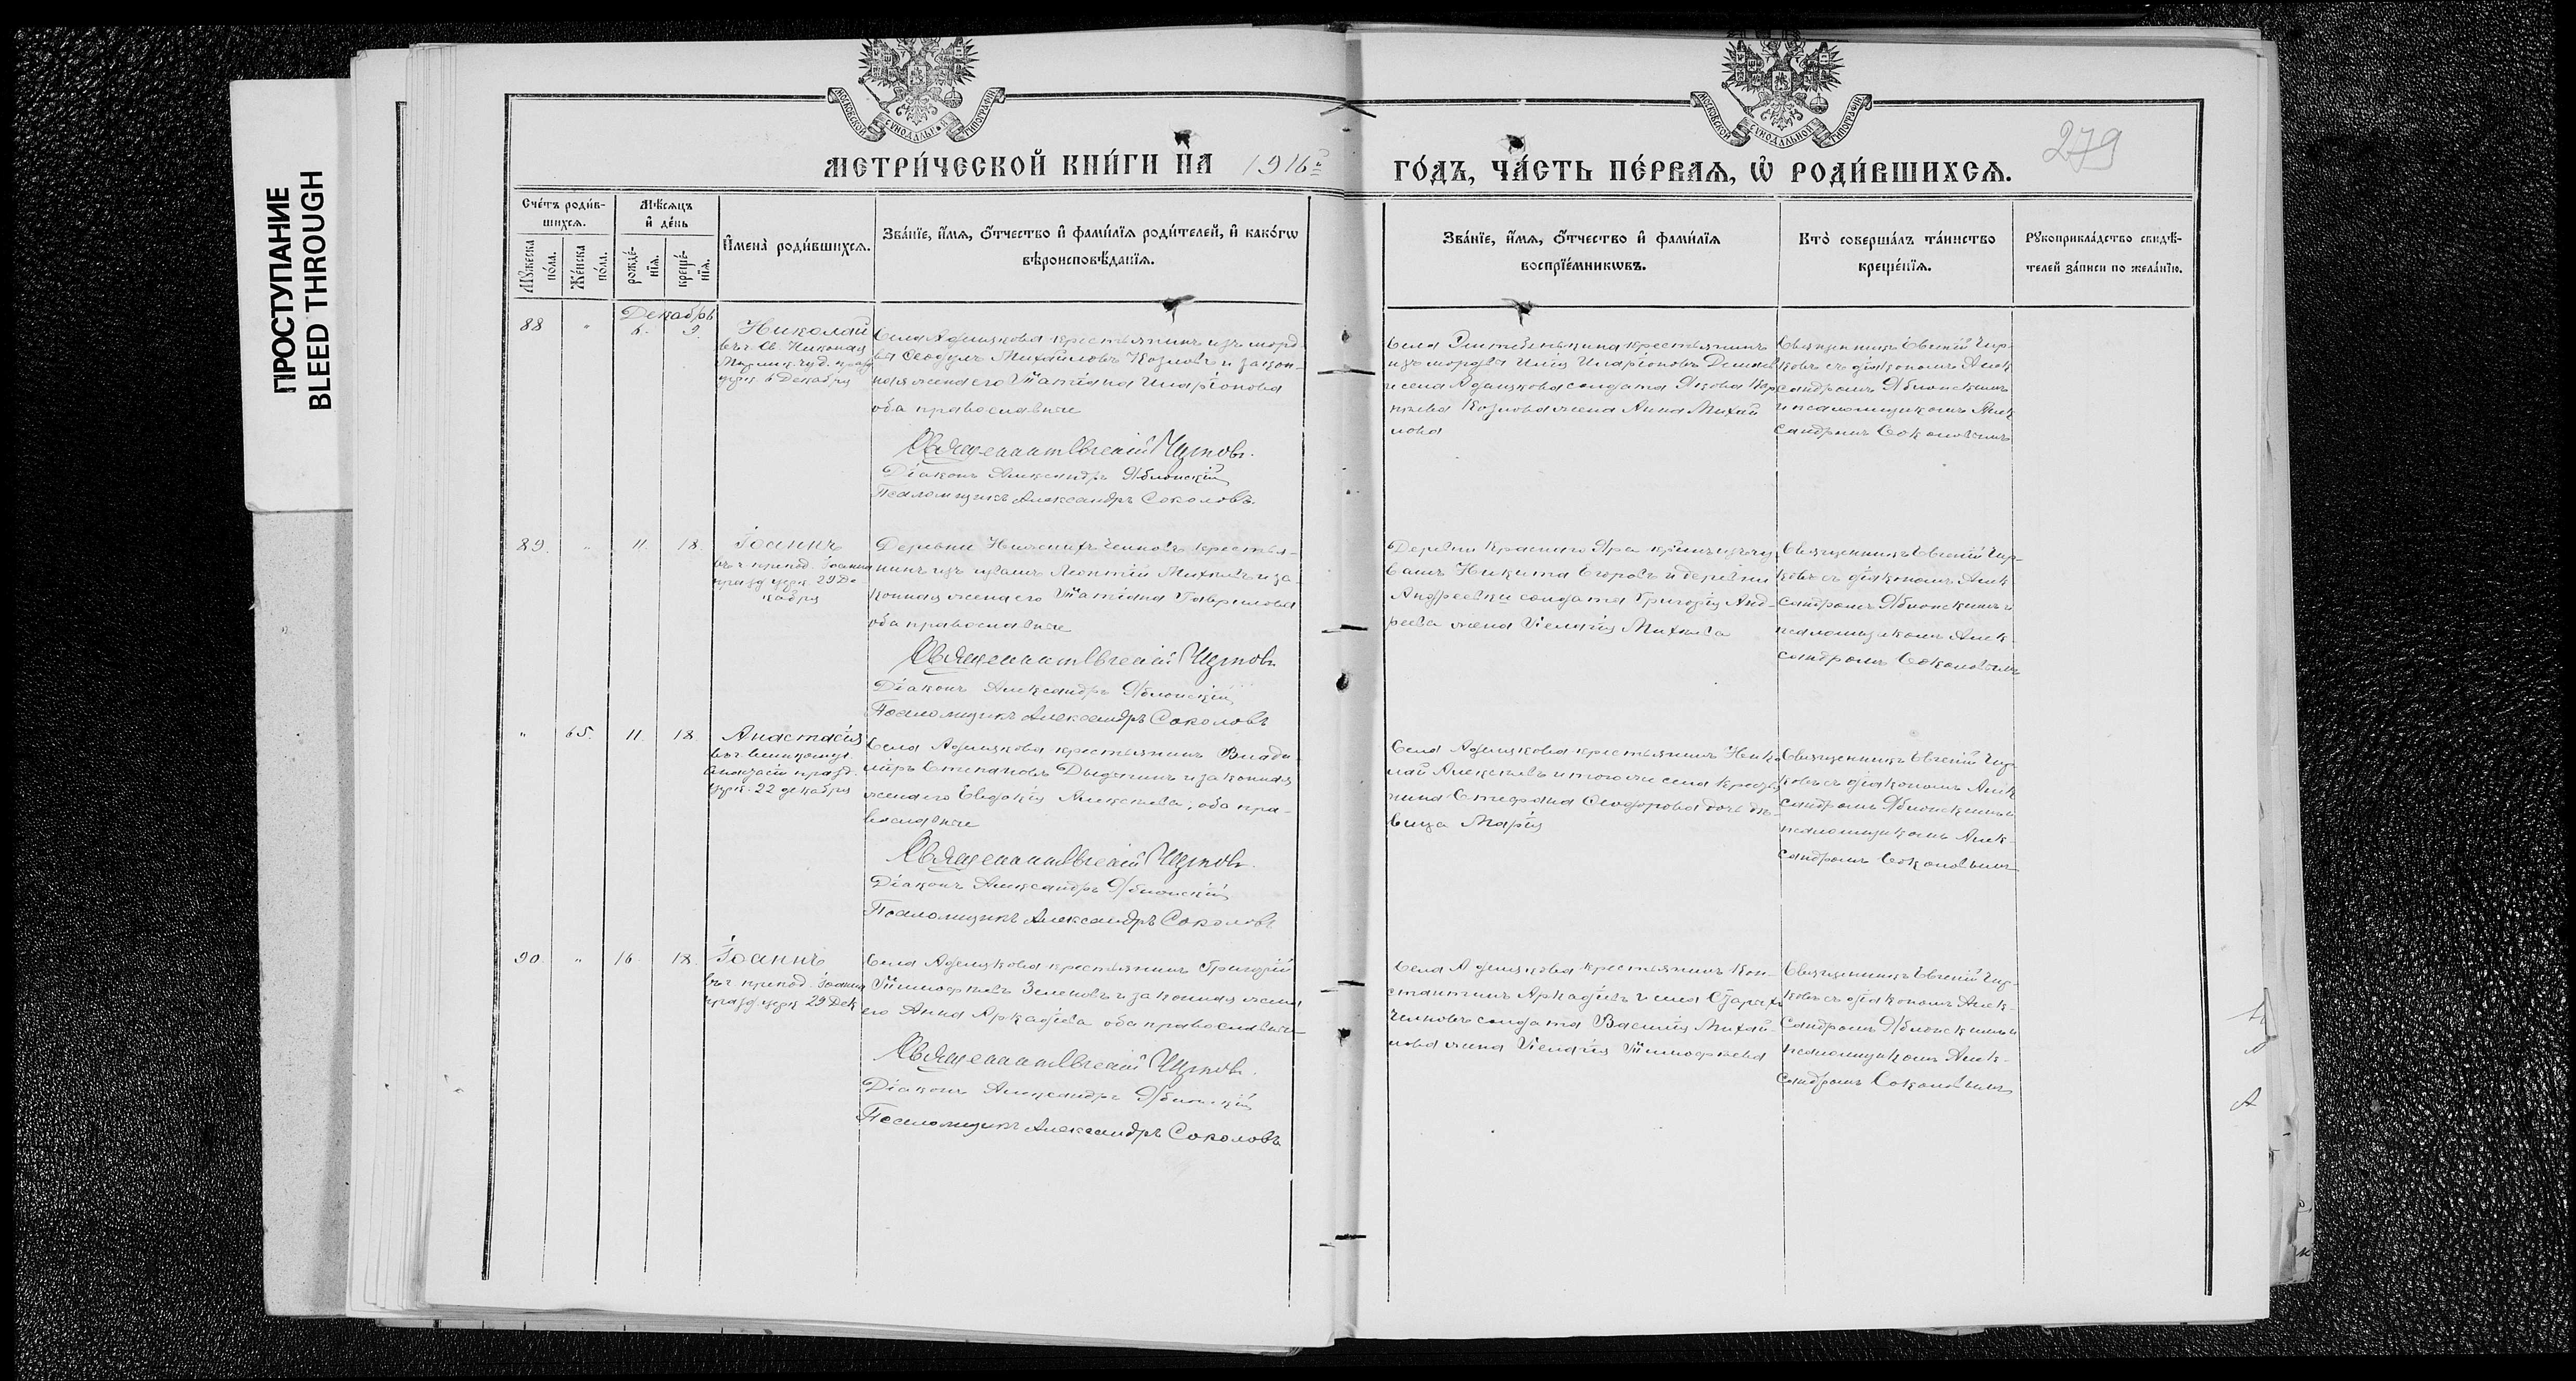 ПРОСТУПАНИЕ
BLEED THROUGH
МОСКОВСКОЙ СУНОДАЛЬНОЙ ТИПОГРАФІИ
МОСКОВСКОЙ СУНОДАЛЬНОЙ ТИПОГРАФІИ
МЕТРИ́ЧЕСКОЙ КНИ́ГИ НА 1916й
ГО́ДЪ, ЧА́СТЬ ПЕ́РВАѦ, Ѡ҆ РОДИ́ВШИХСѦ.
279
Сче́тъ роди́в-
шихсѧ.
Мꙋ́жеска
по́ла.
Же́нска
по́ла.
Мѣ́сѧцъ
и҆ де́нь
рожде́-
нїѧ.
креще́-
нїѧ.
И҆мена̀ роди́вшихсѧ.
Зва́нїе, и҆́мѧ, ѻ҆́тчество и҆ фами́лїѧ роди́телей, и҆ како́гѡ
вѣроисповѣ́данїѧ.
Зва́нїе, и҆́мѧ, ѻ҆́тчество и҆ фами́лїѧ
воспрїе́мникѡвъ.
Кто̀ соверша́лъ та́инство
креще́нїѧ.
Рꙋкоприкла́дство свидѣ́-
телей за́писи по жела́нїю.
Декабрь
88 " 6. 9.
Николай
въ ч. Св. Николая
Мѵрлик. чуд. празд
церк. 6 Декабря
Села Аделякова крестьянинъ изъ морд-
вы Ѳеодулъ Михайловъ Козловъ и закон-
ная жена его Татіана Иларіонова
оба православные
Священникъ Евгеній Чирковъ.
Діаконъ Александръ Яблонскій
Псаломщикъ Александръ Соколовъ.
изъ мордвы Илія Иларіоновъ
и села Аделякова солдата Якова
Козлова жена Анна Михай
лова
Священникъ Евгеній Чир-
ковъ съ діакономъ Алек
сандромъ Яблонскимъ
и псаломщикомъ Алек
сандромъ Соколовымъ
89. " 11. 18.
Іоаннъ
въ ч. препод. Іоанна
празд церк. 29 Де
кабря
Деревни Нижнихъ Челновъ крестья-
нинъ изъ чувашъ Леонтій Михеевъ и за
конная жена его Татіана Гаврилова
оба православные
Священникъ Евгеній Чирковъ
Діаконъ Александръ Яблонскій
Псаломщикъ Александръ Соколовъ
Деревни Краснаго Яра кр-нинъ изъ чу
вашъ Никита Егоровъ и деревни
Андреевки солдата Григорія Анд-
реева жена Пелагія Михеева
Священникъ Евгеній Чир-
ковъ съ діакономъ Алек
сандромъ Яблонскимъ и
псаломщикомъ Алек-
сандромъ Соколовымъ
" 65. 11. 18.
Анастасія
въ ч. великомуч.
Анастасіи празд.
церк. 22 декабря
Села Аделякова крестьянинъ Влади
міръ Степановъ и законная
жена его Евдокія Алексеева, оба пра-
вославные
Священникъ Евгеній Чирковъ.
Діаконъ Александръ Яблонскій
Псаломщикъ Александръ Соколовъ
Села Аделякова крестьянинъ Нико
лай Алексеевъ и того же села крестья
нина Стефана Ѳеодорова дочь дѣ-
вица Марія
Священникъ Евгеній Чир-
ковъ съ діакономъ Алек
сандромъ Яблонскимъ и
псаломщикомъ Алек-
сандромъ Соколовымъ
90. " 16. 18.
Іоаннъ
въ ч. препод. Іоанна
празд. церк 29 Дек
Села Аделякова крестьянинъ Григорій
Тимофеевъ Зеленовъ и законная жена
его Анна Аркадіева оба православные
Священникъ Евгеній Чирковъ.
Діаконъ Александръ Яблонскій
Псаломщикъ Александръ Соколовъ
Села Аделякова крестьянинъ Кон-
стантинъ Аркадіевъ и села Старыхъ
Челновъ солдата Василія Михай-
лова жена Пелагія Тимофеева
Священникъ Евгеній Чир-
ковъ съ діакономъ Алек-
сандромъ Яблонскимъ и
псаломщикомъ Алек-
сандромъ Соколовымъ